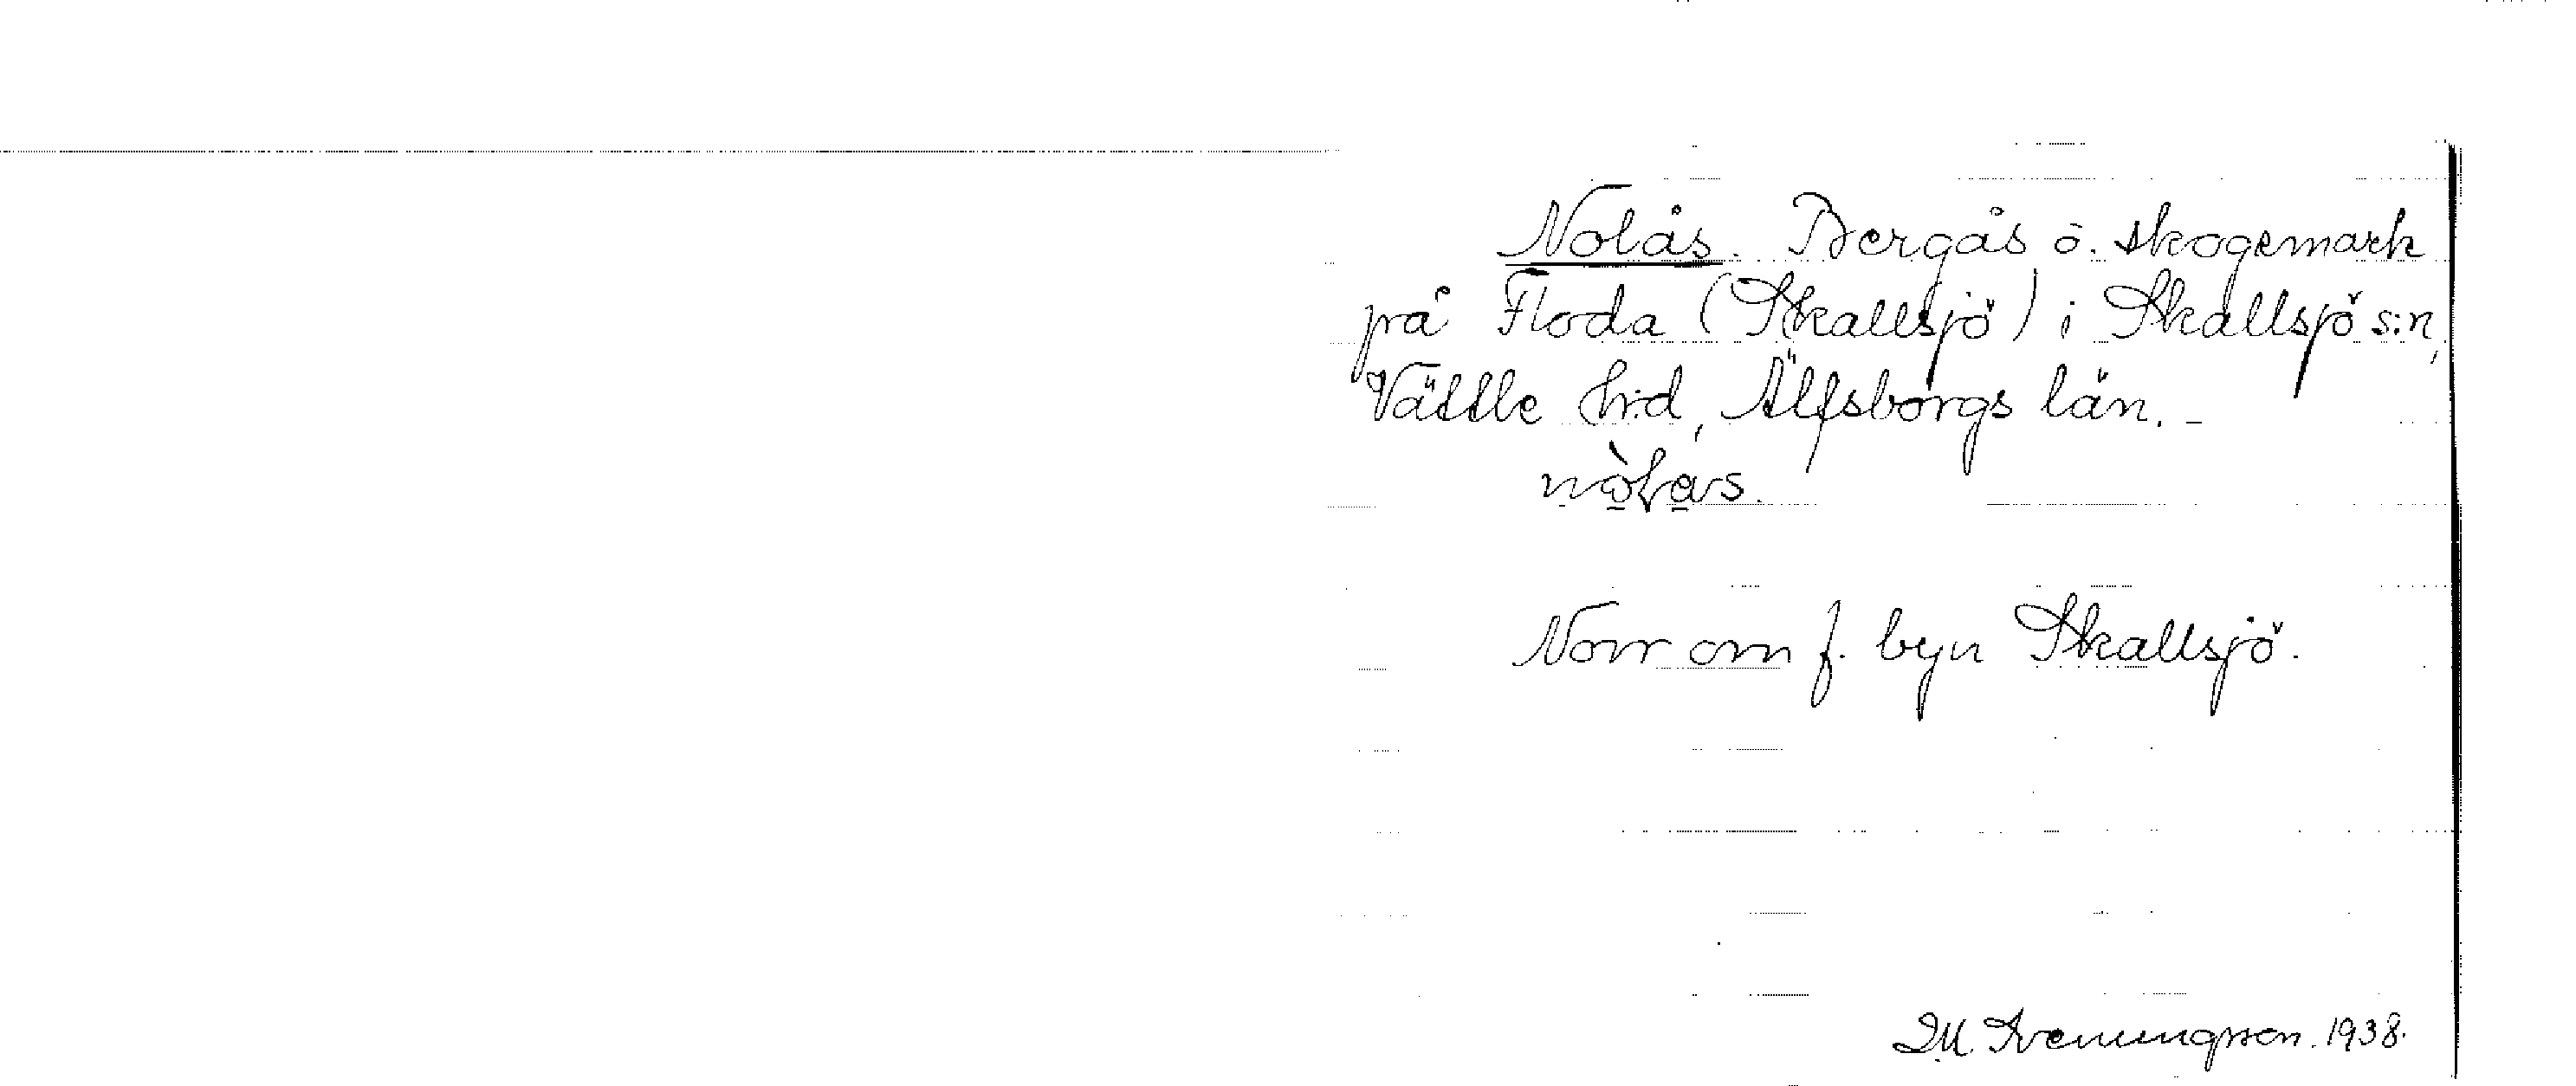 Nolås. Bergås o. skogsmark
på Floda (Skallsjö) i Skallsjö s:n,
Vättle h:d, Älfsborgs län. -
Norr om f. byn Skallsjö.
D.M. Svenungsson. 1938.